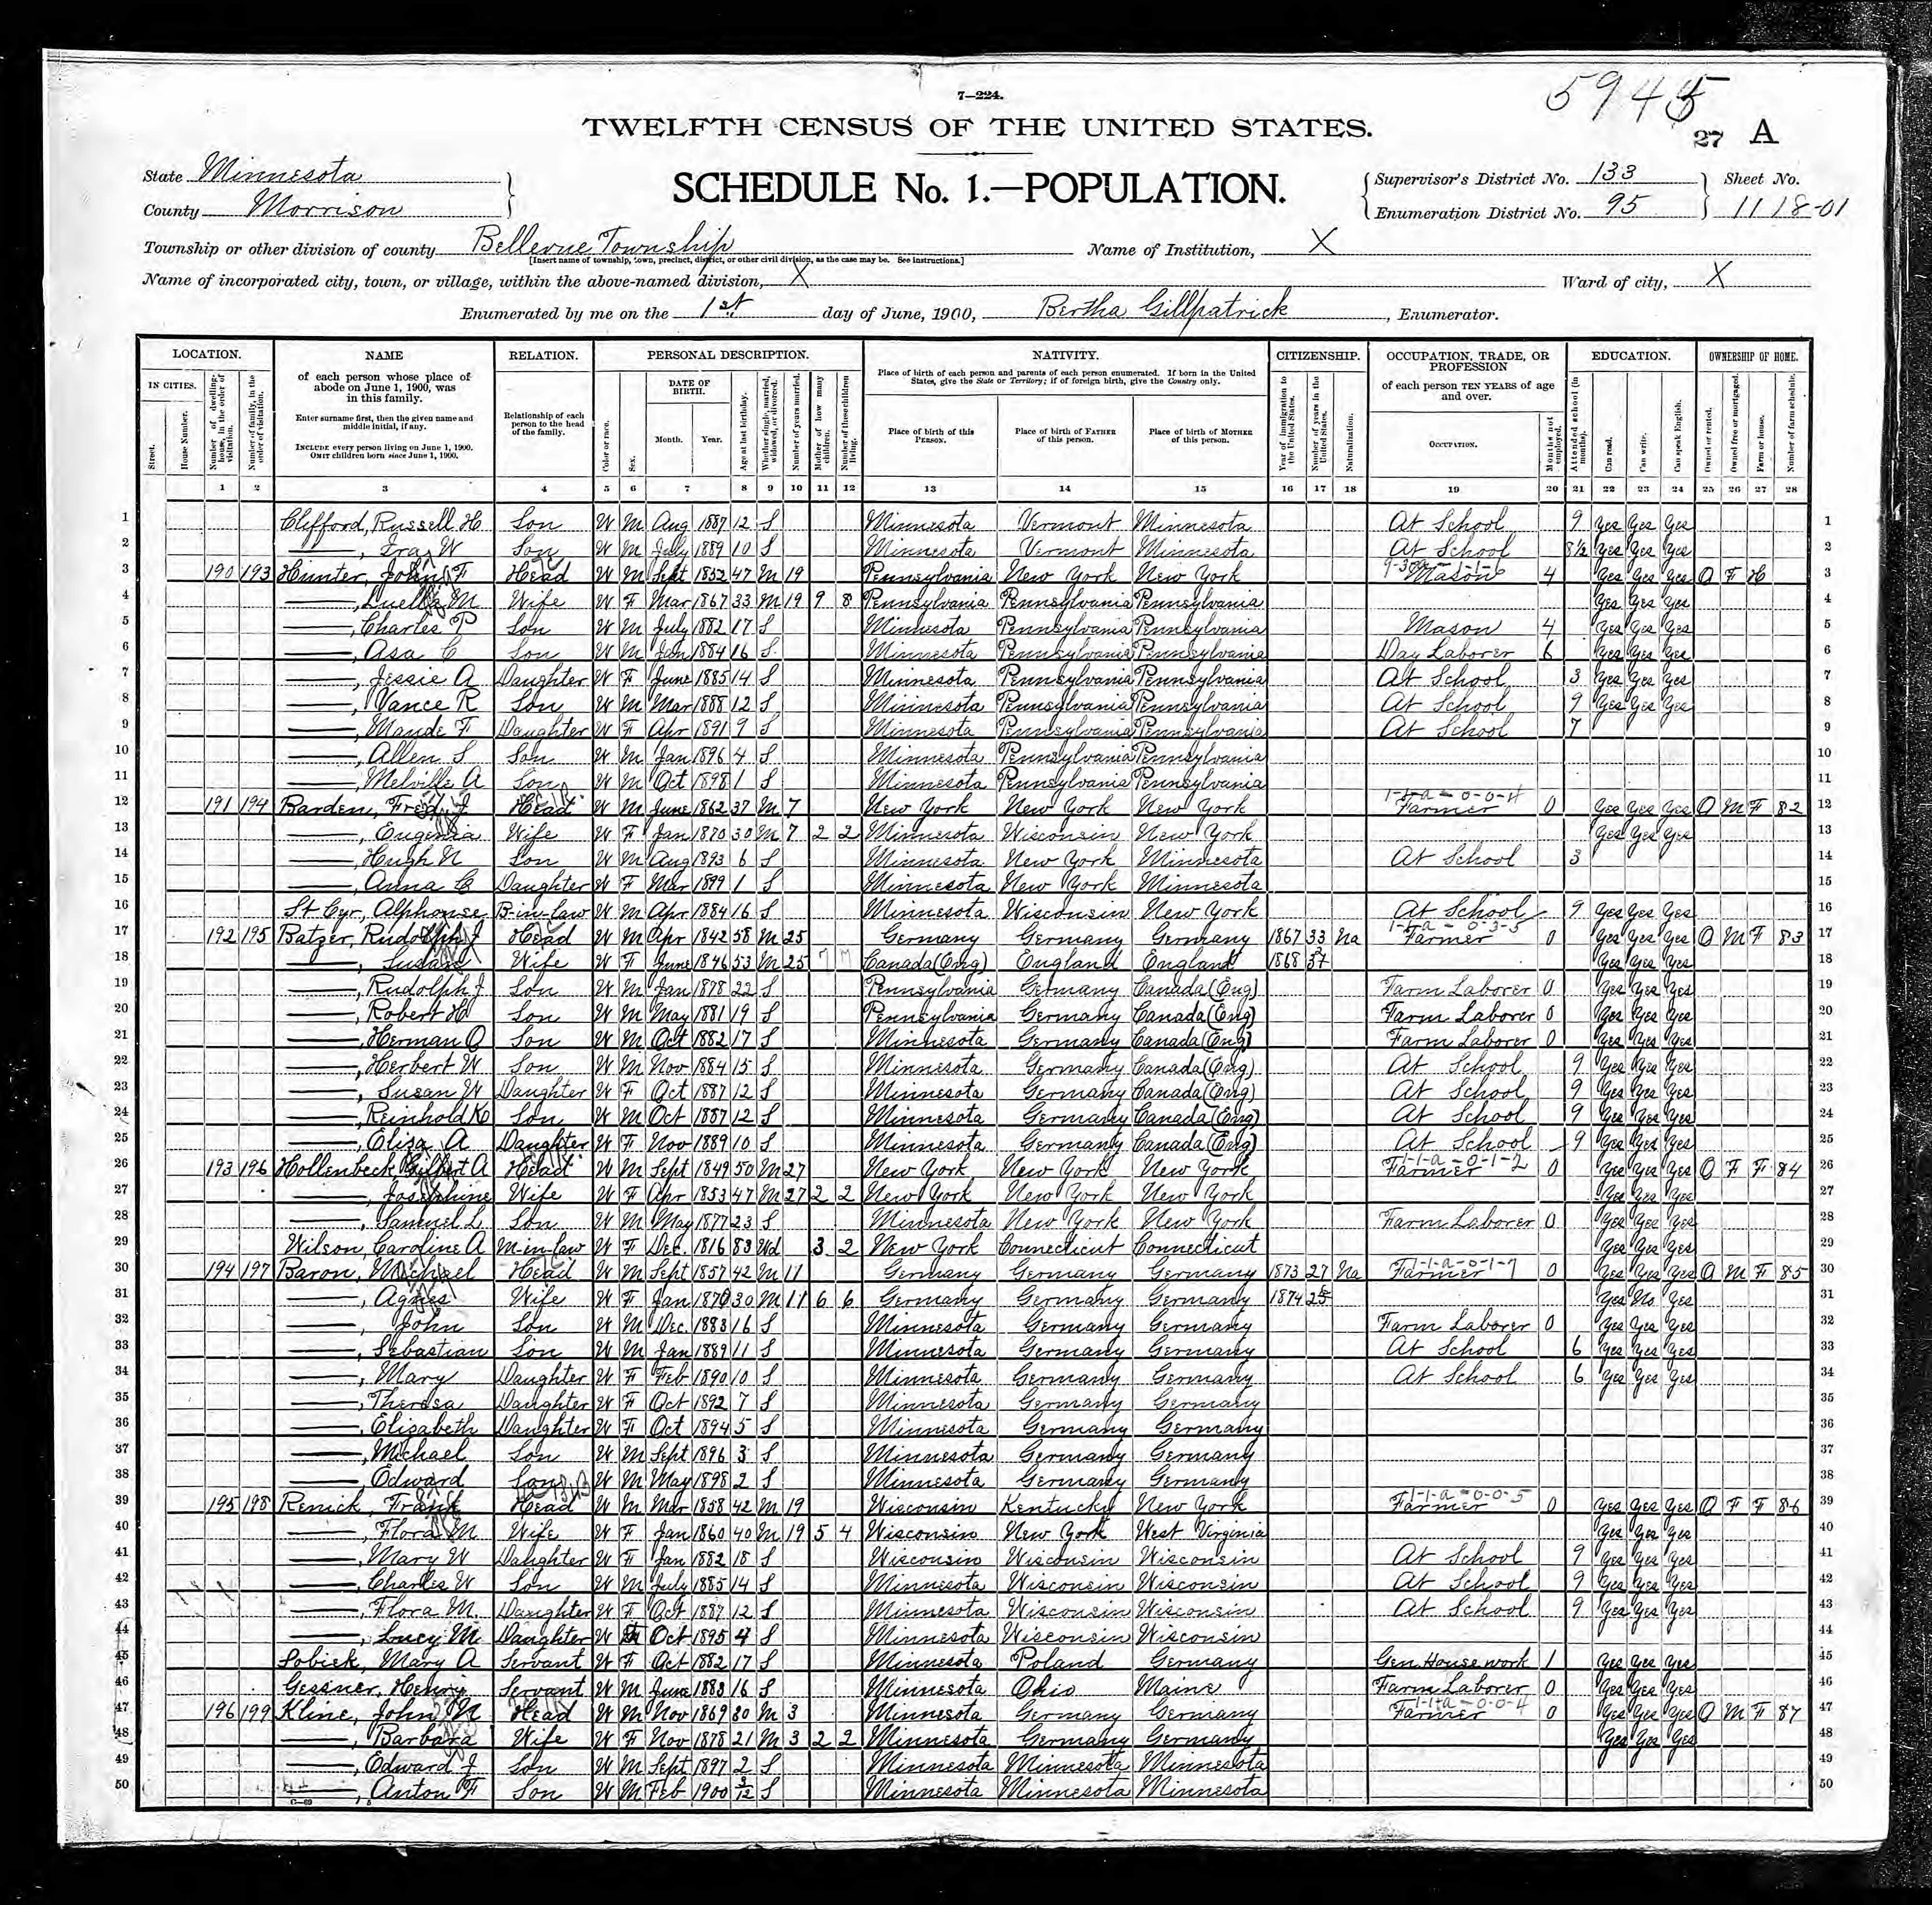 5945
7—224.
27 A
TWELFTH CENSUS OF THE UNITED STATES.
State Minnesota
County Morrison
SCHEDULE No. 1.—POPULATION.
Supervisor's District No. 133
Enumeration District No. 95
Sheet No.
11 18-01
Township or other division of county Bellevue Township
[Insert name of township, town, precinct, district, or other civil division, as the case may be. See instructions.]
Name of Institution, X
Name of incorporated city, town, or village, within the above-named division, X
Ward of city, X
Enumerated by me on the 1st day of June, 1900, Bertha Gillpatrick, Enumerator.
LOCATION. NAME RELATION. PERSONAL DESCRIPTION. NATIVITY. CITIZENSHIP. OCCUPATION, TRADE, OR PROFESSION EDUCATION. OWNERSHIP OF HOME.
IN CITIES. Street. House Number. Number of dwelling-house, in the order of visitation. Number of family, in the order of visitation.
of each person whose place of abode on June 1, 1900, was in this family.
Enter surname first, then the given name and middle initial, if any.
INCLUDE every person living on June 1, 1900. OMIT children born since June 1, 1900.
Relationship of each person to the head of the family.
Color or race. Sex. DATE OF BIRTH. Month. Year. Age at last birthday. Whether single, married, widowed, or divorced. Number of years married. Mother of how many children. Number of these children living.
Place of birth of each person and parents of each person enumerated. If born in the United States, give the State or Territory; if of foreign birth, give the Country only.
Place of birth of this PERSON. Place of birth of FATHER of this person. Place of birth of MOTHER of this person.
Year of immigration to the United States. Number of years in the United States. Naturalization.
of each person TEN YEARS of age and over.
OCCUPATION. Months not employed.
Attended school (in months). Can read. Can write. Can speak English.
Owned or rented. Owned free or mortgaged. Farm or house. Number of farm schedule.
1 2 3 4 5 6 7 8 9 10 11 12 13 14 15 16 17 18 19 20 21 22 23 24 25 26 27 28
1 Clifford, Russell H. Son W M Aug 1887 12 S Minnesota Vermont Minnesota At School 9 Yes Yes Yes 1
2 —, Ira W Son W M July 1889 10 S Minnesota Vermont Minnesota At School 8½ Yes Yes Yes 2
3 190 193 Hunter, John F Head W M Sept 1852 47 M 19 Pennsylvania New York New York Mason 4 Yes Yes Yes O F H 3
4 —, Luella M Wife W F Mar 1867 33 M 19 9 8 Pennsylvania Pennsylvania Pennsylvania Yes Yes Yes 4
5 —, Charles P Son W M July 1882 17 S Minnesota Pennsylvania Pennsylvania Mason 4 Yes Yes Yes 5
6 —, Asa C Son W M Jan 1884 16 S Minnesota Pennsylvania Pennsylvania Day Laborer 6 Yes Yes Yes 6
7 —, Jessie A Daughter W F June 1885 14 S Minnesota Pennsylvania Pennsylvania At School 3 Yes Yes Yes 7
8 —, Vance R Son W M Mar 1888 12 S Minnesota Pennsylvania Pennsylvania At School 9 Yes Yes Yes 8
9 —, Maude F Daughter W F Apr 1891 9 S Minnesota Pennsylvania Pennsylvania At School 7 9
10 —, Allen S Son W M Jan 1896 4 S Minnesota Pennsylvania Pennsylvania 10
11 —, Melville A Son W M Oct 1898 1 S Minnesota Pennsylvania Pennsylvania 11
12 191 194 Barden, Fred J Head W M June 1862 37 M 7 New York New York New York Farmer 0 Yes Yes Yes O M F 82 12
13 —, Eugenia Wife W F Jan 1870 30 M 7 2 2 Minnesota Wisconsin New York Yes Yes Yes 13
14 —, Hugh N Son W M Aug 1893 6 S Minnesota New York Minnesota At School 3 14
15 —, Anna C Daughter W F Mar 1899 1 S Minnesota New York Minnesota 15
16 St Cyr, Alphonse B-in-law W M Apr 1884 16 S Minnesota Wisconsin New York At School 9 Yes Yes Yes 16
17 192 195 Batzer, Rudolph J Head W M Apr 1842 58 M 25 Germany Germany Germany 1867 33 Na Farmer 0 Yes Yes Yes O M F 83 17
18 —, Susan Wife W F June 1846 53 M 25 7 7 Canada (Eng) England England 1868 Yes Yes Yes 18
19 —, Rudolph J Son W M Jan 1878 22 S Pennsylvania Germany Canada (Eng) Farm Laborer 0 Yes Yes Yes 19
20 —, Robert H Son W M May 1881 19 S Pennsylvania Germany Canada (Eng) Farm Laborer 0 Yes Yes Yes 20
21 —, Herman O Son W M Oct 1882 17 S Minnesota Germany Canada (Eng) Farm Laborer 0 Yes Yes Yes 21
22 —, Herbert W Son W M Nov 1884 15 S Minnesota Germany Canada (Eng) At School 9 Yes Yes Yes 22
23 —, Susan W Daughter W F Oct 1887 12 S Minnesota Germany Canada (Eng) At School 9 Yes Yes Yes 23
24 —, Reinhold K Son W M Oct 1887 12 S Minnesota Germany Canada (Eng) At School 9 Yes Yes Yes 24
25 —, Eliza A Daughter W F Nov 1889 10 S Minnesota Germany Canada (Eng) At School 9 Yes Yes Yes 25
26 193 196 Hollenbeck, Gilbert A Head W M Sept 1849 50 M 27 New York New York New York Farmer 0 Yes Yes Yes O F F 84 26
27 —, Josephine Wife W F Apr 1853 47 M 27 2 2 New York New York New York Yes Yes Yes 27
28 —, Samuel L Son W M May 1877 23 S Minnesota New York New York Farm Laborer 0 Yes Yes Yes 28
29 Wilson, Caroline A M-in-law W F Dec. 1816 83 Wd 3 2 New York Connecticut Connecticut Yes Yes Yes 29
30 194 197 Baron, Michael Head W M Sept 1857 42 M 11 Germany Germany Germany 1873 27 Na Farmer 0 Yes Yes Yes O M F 85 30
31 —, Agnes Wife W F Jan 1870 30 M 11 6 6 Germany Germany Germany 1874 Yes No Yes 31
32 —, John Son W M Dec. 1883 16 S Minnesota Germany Germany Farm Laborer 0 Yes Yes Yes 32
33 —, Sebastian Son W M Jan 1889 11 S Minnesota Germany Germany At School 6 Yes Yes Yes 33
34 —, Mary Daughter W F Feb 1890 10 S Minnesota Germany Germany At School 6 Yes Yes Yes 34
35 —, Theresa Daughter W F Oct 1892 7 S Minnesota Germany Germany 35
36 —, Elizabeth Daughter W F Oct 1894 5 S Minnesota Germany Germany 36
37 —, Michael Son W M Sept 1896 3 S Minnesota Germany Germany 37
38 —, Edward Son W M May 1898 2 S Minnesota Germany Germany 38
39 195 198 Renick, Frank Head W M Mar 1858 42 M 19 Wisconsin Kentucky New York Farmer 0 Yes Yes Yes O F F 86 39
40 —, Flora M Wife W F Jan 1860 40 M 19 5 4 Wisconsin New York West Virginia Yes Yes Yes 40
41 —, Mary W Daughter W F Jan 1882 18 S Wisconsin Wisconsin Wisconsin At School 9 Yes Yes Yes 41
42 —, Charles W Son W M July 1885 14 S Minnesota Wisconsin Wisconsin At School 9 Yes Yes Yes 42
43 —, Flora M. Daughter W F Oct 1887 12 S Minnesota Wisconsin Wisconsin At School 9 Yes Yes Yes 43
44 —, Lucy M Daughter W F Oct 1895 4 S Minnesota Wisconsin Wisconsin 44
45 Sobiek, Mary A Servant W F Oct 1882 17 S Minnesota Poland Germany Gen. Housework 1 Yes Yes Yes 45
46 Gessner, Henry Servant W M June 1883 16 S Minnesota Ohio Maine Farm Laborer 0 Yes Yes Yes 46
47 196 199 Kline, John N Head W M Nov 1869 30 M 3 Minnesota Germany Germany Farmer 0 Yes Yes Yes O M F 87 47
48 —, Barbara Wife W F Nov 1878 21 M 3 2 2 Minnesota Germany Germany Yes Yes Yes 48
49 —, Edward J Son W M Sept 1897 2 S Minnesota Minnesota Minnesota 49
50 —, Anton F Son W M Feb 1900 3/12 S Minnesota Minnesota Minnesota 50